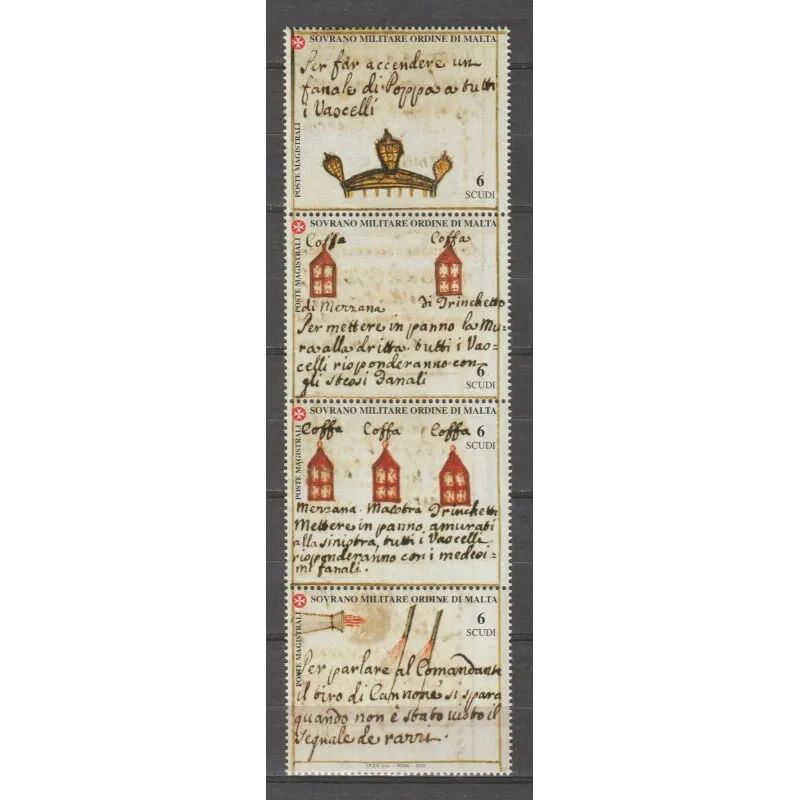 SOVRANO MILITARE ORDINE DI MALTA
Per far accendere un
fanale di Poppa a tutti
i Vascelli
POSTE MAGISTRALI
6
SCUDI
SOVRANO MILITARE ORDINE DI MALTA
Coffa Coffa
POSTE MAGISTRALI
di Mezzana di Trinchetto
Per mettere in panno la Mu-
ra alla dritta tutti i Vas=
celli risponderanno con
gli stessi fanali
6
SCUDI
SOVRANO MILITARE ORDINE DI MALTA
Coffa Coffa Coffa
6
SCUDI
POSTE MAGISTRALI
Mezzana. Maestra Trinchetto
Mettere in panno amurati
alla sinistra, tutti i Vascelli
risponderanno con i medesi-
mi fanali.
SOVRANO MILITARE ORDINE DI MALTA
6
SCUDI
POSTE MAGISTRALI
Per parlare al Comandante
il tiro di Cannone si spara
quando non è stato visto il
segnale de razzi.
ROMA